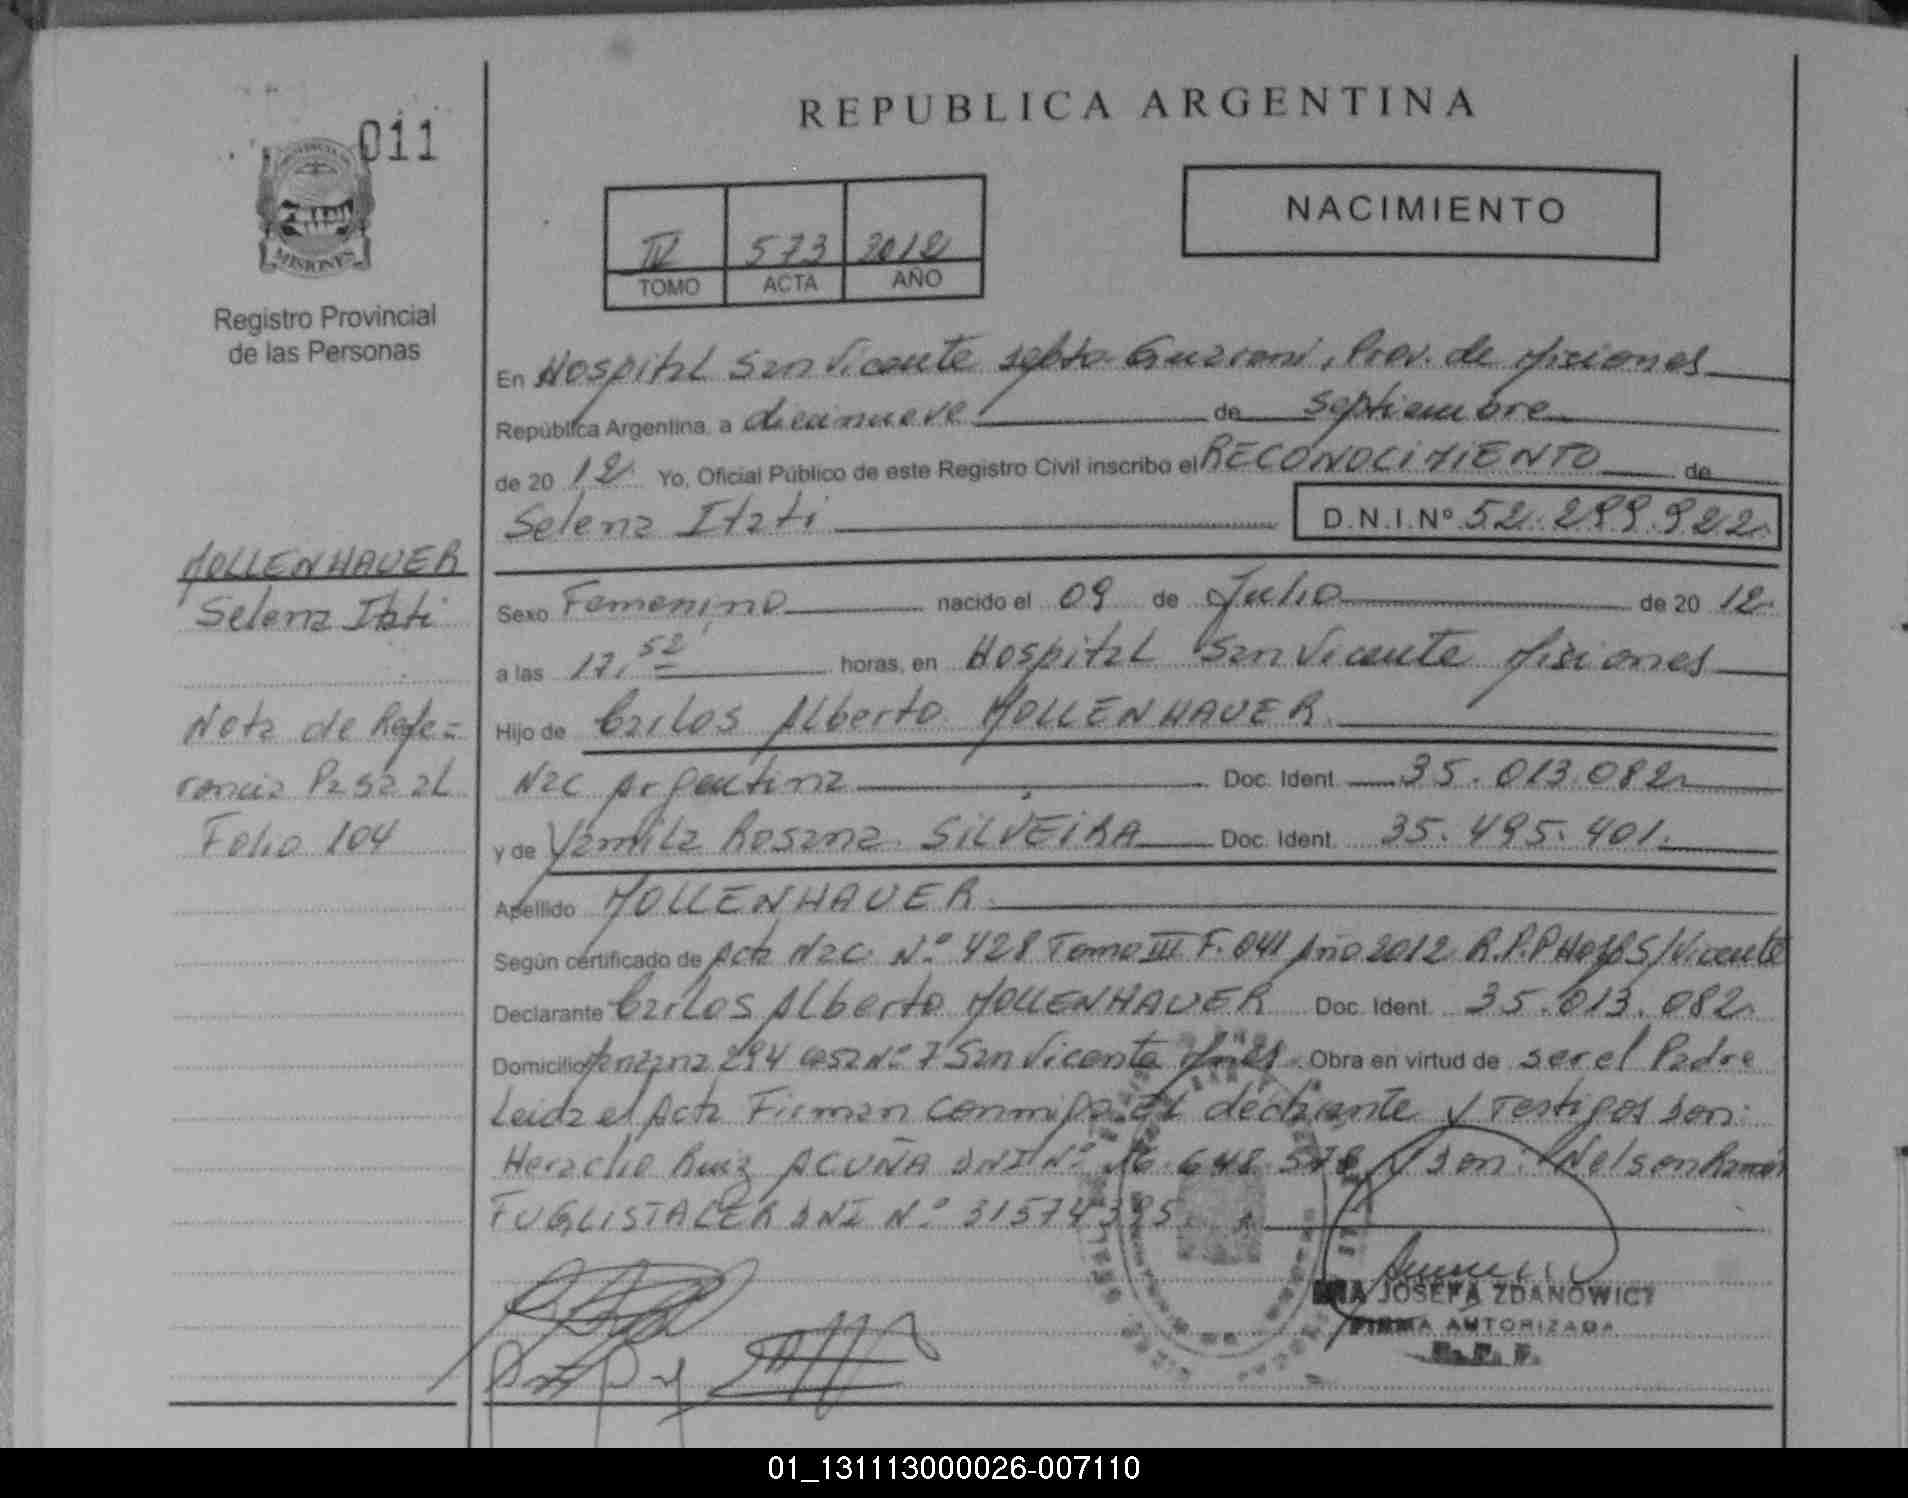 011
PROVINCIA DE
MISIONES
Registro Provincial
de las Personas
MOLLENHAUER
Selena Itati
Nota de Refe=
rencia Pasa al
Folio 104
REPUBLICA ARGENTINA
NACIMIENTO
IV 573 2012
TOMO ACTA AÑO
En Hospital San Vicente Dpto Guarani, Prov. de Misiones
República Argentina, a diecinueve de septiembre
de 20 12 Yo, Oficial Público de este Registro Civil inscribo el RECONOCIMIENTO de
Selena Itati D.N.I.Nº 52.299.922
Sexo Femenino nacido el 09 de Julio de 20 12
a las 17,52 horas, en Hospital San Vicente Misiones
Hijo de Carlos Alberto MOLLENHAUER
Nac Argentina Doc. Ident. 35.013.082
y de Yamila Rosana SILVEIRA Doc. Ident. 35.495.401.
Apellido MOLLENHAUER
Según certificado de Acta Nac. Nº 428 Tomo III F. 041 Año 2012 R.P.P Hosp S/Vicente
Declarante Carlos Alberto MOLLENHAUER Doc. Ident. 35.013.082
Domicilio Manzana 294 casa Nº 7 San Vicente Mnes Obra en virtud de ser el Padre
Leida el Acta Firman conmigo el declarante y Testigos son:
Heraclio Ruiz ACUÑA DNI Nº 648.578 y Don: Nelson Ramón
FUGLISTALER DNI Nº 31574395
JOSEFA ZDANOWICZ
FIRMA AUTORIZADA
R. P. P.
01_131113000026-007110